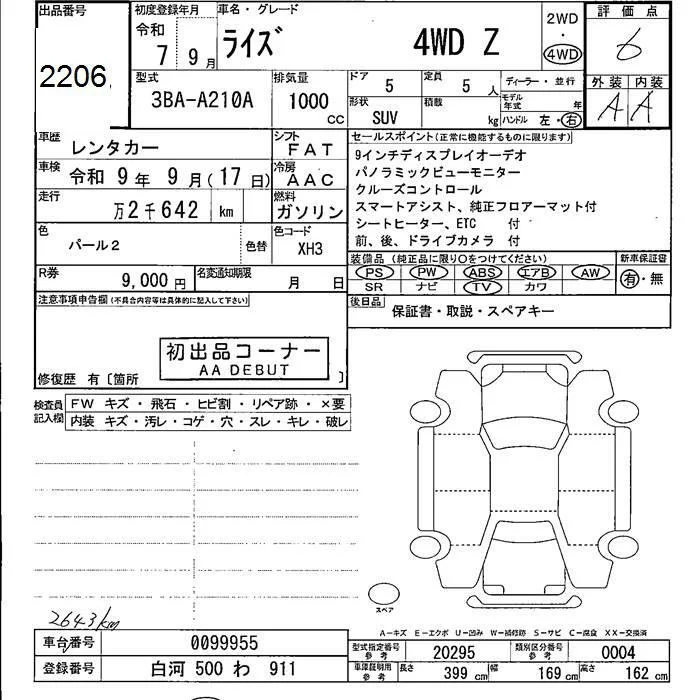 出品番号
2206
初度登録年月
令和
7 9月
車名・グレード
ライズ 4WD Z
2WD
・
4WD
評価点
6
型式
3BA-A210A
排気量
1000
cc
ドア
5
定員
5人
ディーラー・並行
モデル年式 年
形状
SUV
積載
kg
ハンドル 左・右
外装 内装
A A
車歴
レンタカー
シフト
FAT
車検
令和 9年 9月(17日)
冷房
AAC
走行
万2千642 km
燃料
ガソリン
色
パール2
色替
色コード
XH3
R券
9,000円
名変通知期限
月 日
セールスポイント(正常に機能するものに限ります)
9インチディスプレイオーデオ
パノラミックビューモニター
クルーズコントロール
スマートアシスト、純正フロアーマット付
シートヒーター、ETC 付
前、後、ドライブカメラ 付
装備品(純正品に限り○をつけてください)
新車保証書
PS PW ABS エアB AW
SR ナビ TV カワ
有・無
後日品
保証書・取説・スペアキー
注意事項申告欄(不具合内容等は具体的に記入して下さい)
初出品コーナー
AA DEBUT
修復歴 有〔箇所 〕
検査員記入欄
FW キズ・飛石・ヒビ割・リペア跡・×要
内装 キズ・汚レ・コゲ・穴・スレ・キレ・破レ
スペア
2643km
A-キズ E-エクボ U-凹み W-補修跡 S-サビ C-腐食 XX-交換済
車台番号
0099955
登録番号
白河 500 わ 911
型式指定番号
参考
20295
類別区分番号
参考
0004
車庫証明用
参考
長さ 399cm 幅 169cm 高さ 162cm